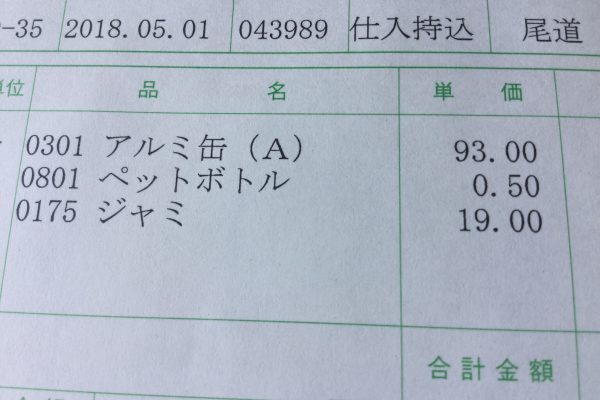 -35 2018.05.01 043989 仕入持込 尾道
単位 品 名 単 価
0301 アルミ缶（A） 93.00
0801 ペットボトル 0.50
0175 ジャミ 19.00
合計金額